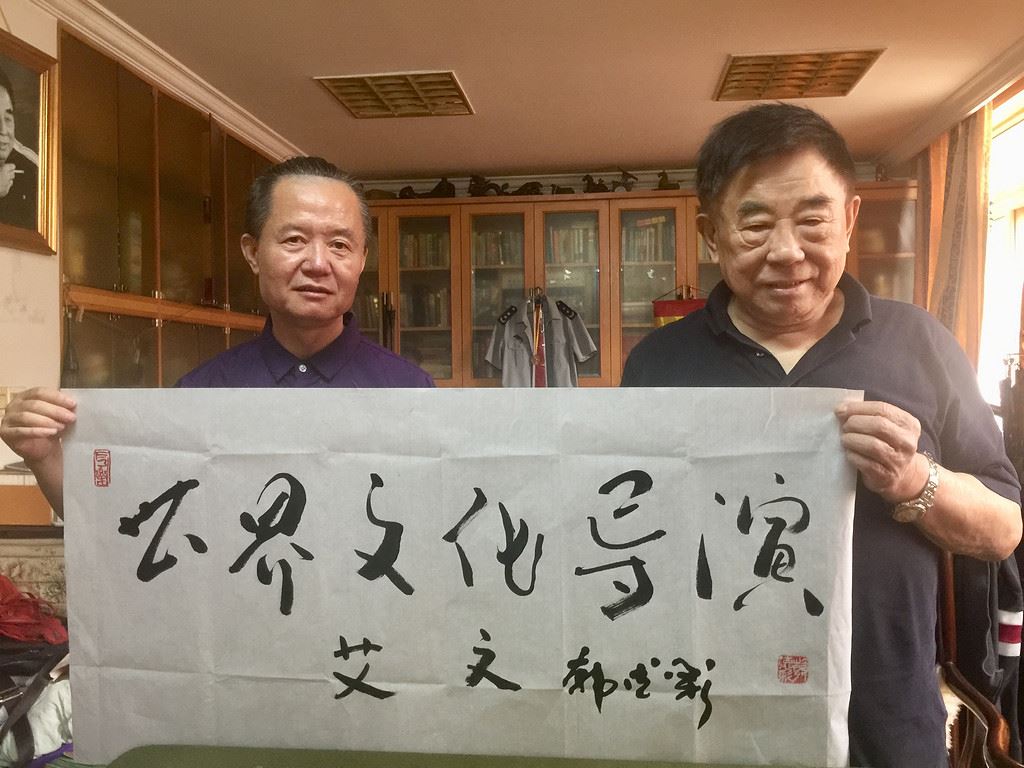 世界文化导演
艾文 韩学彩